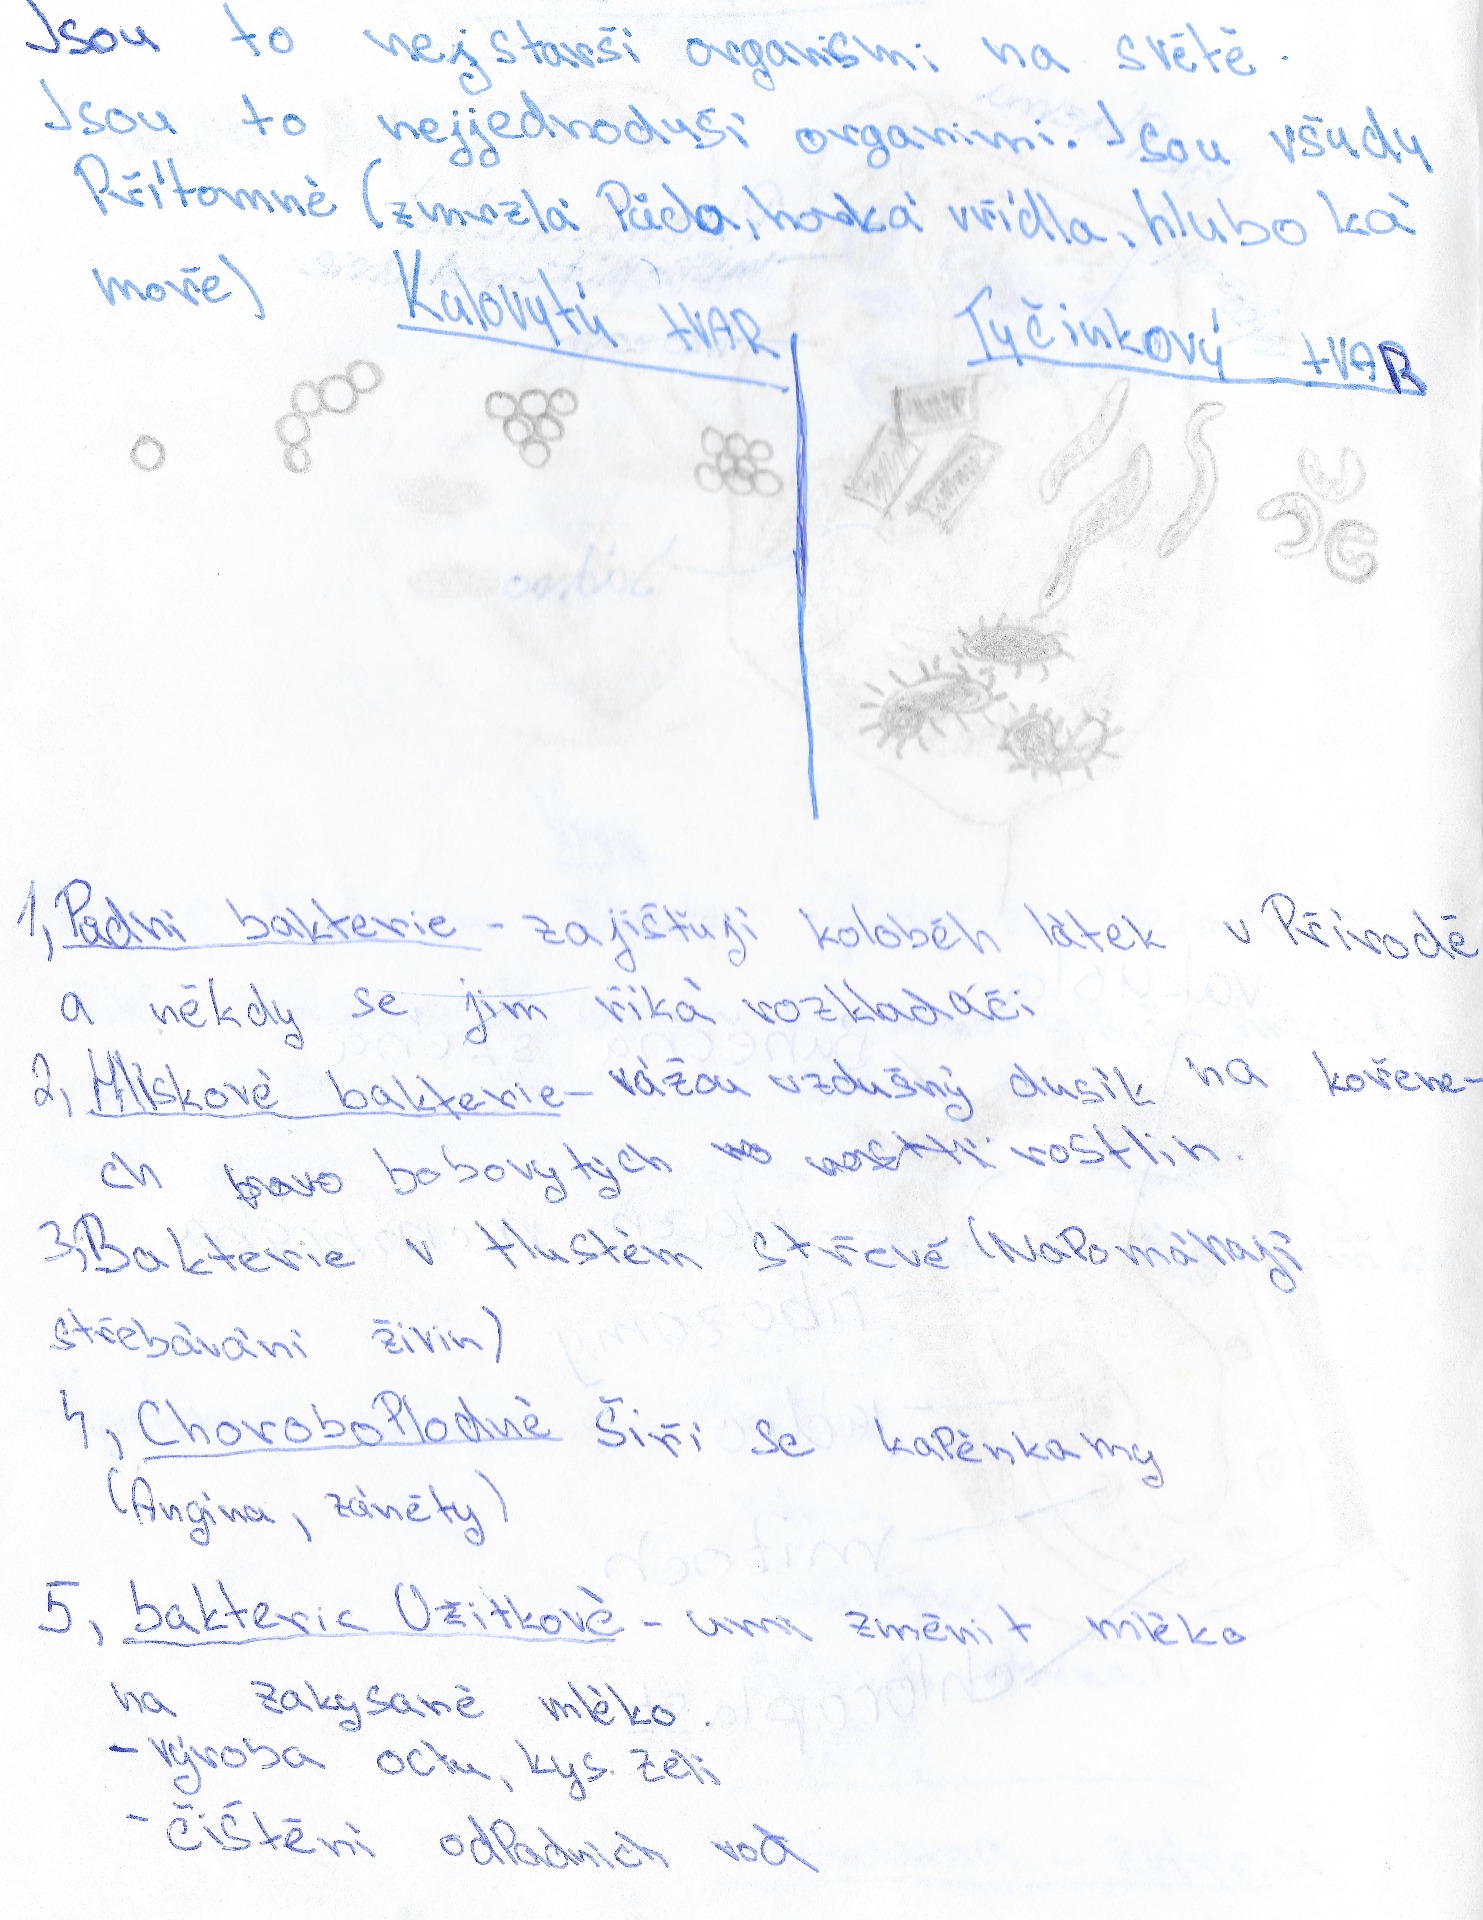 Jsou to nejstarší organismi na světě.
Jsou to nejjednoduší organimi. Jsou všudy
Přítomné (zmrzlá Půda, horká vřídla, hluboká
moře)
Kulovytý tVAR
Tyčinkový tVAR
1, Půdní bakterie - zajištují koloběh látek v Přírodě
a někdy se jim říká rozkladáči
2, Hlískové bakterie - vážou vzdušný dusík na kořene-
ch bobovytých rostlin.
3, Bakterie v tlustém střevě (NaPomáhají
střebávání živin)
4, ChoroboPlodné Šíří se kaPénkamy
(Angina, záněty)
5, bakterie Užitkové - umí změnit mléko
na zakysané mléko.
- výroba octu, kys. zelí
- čištění odPadních vod